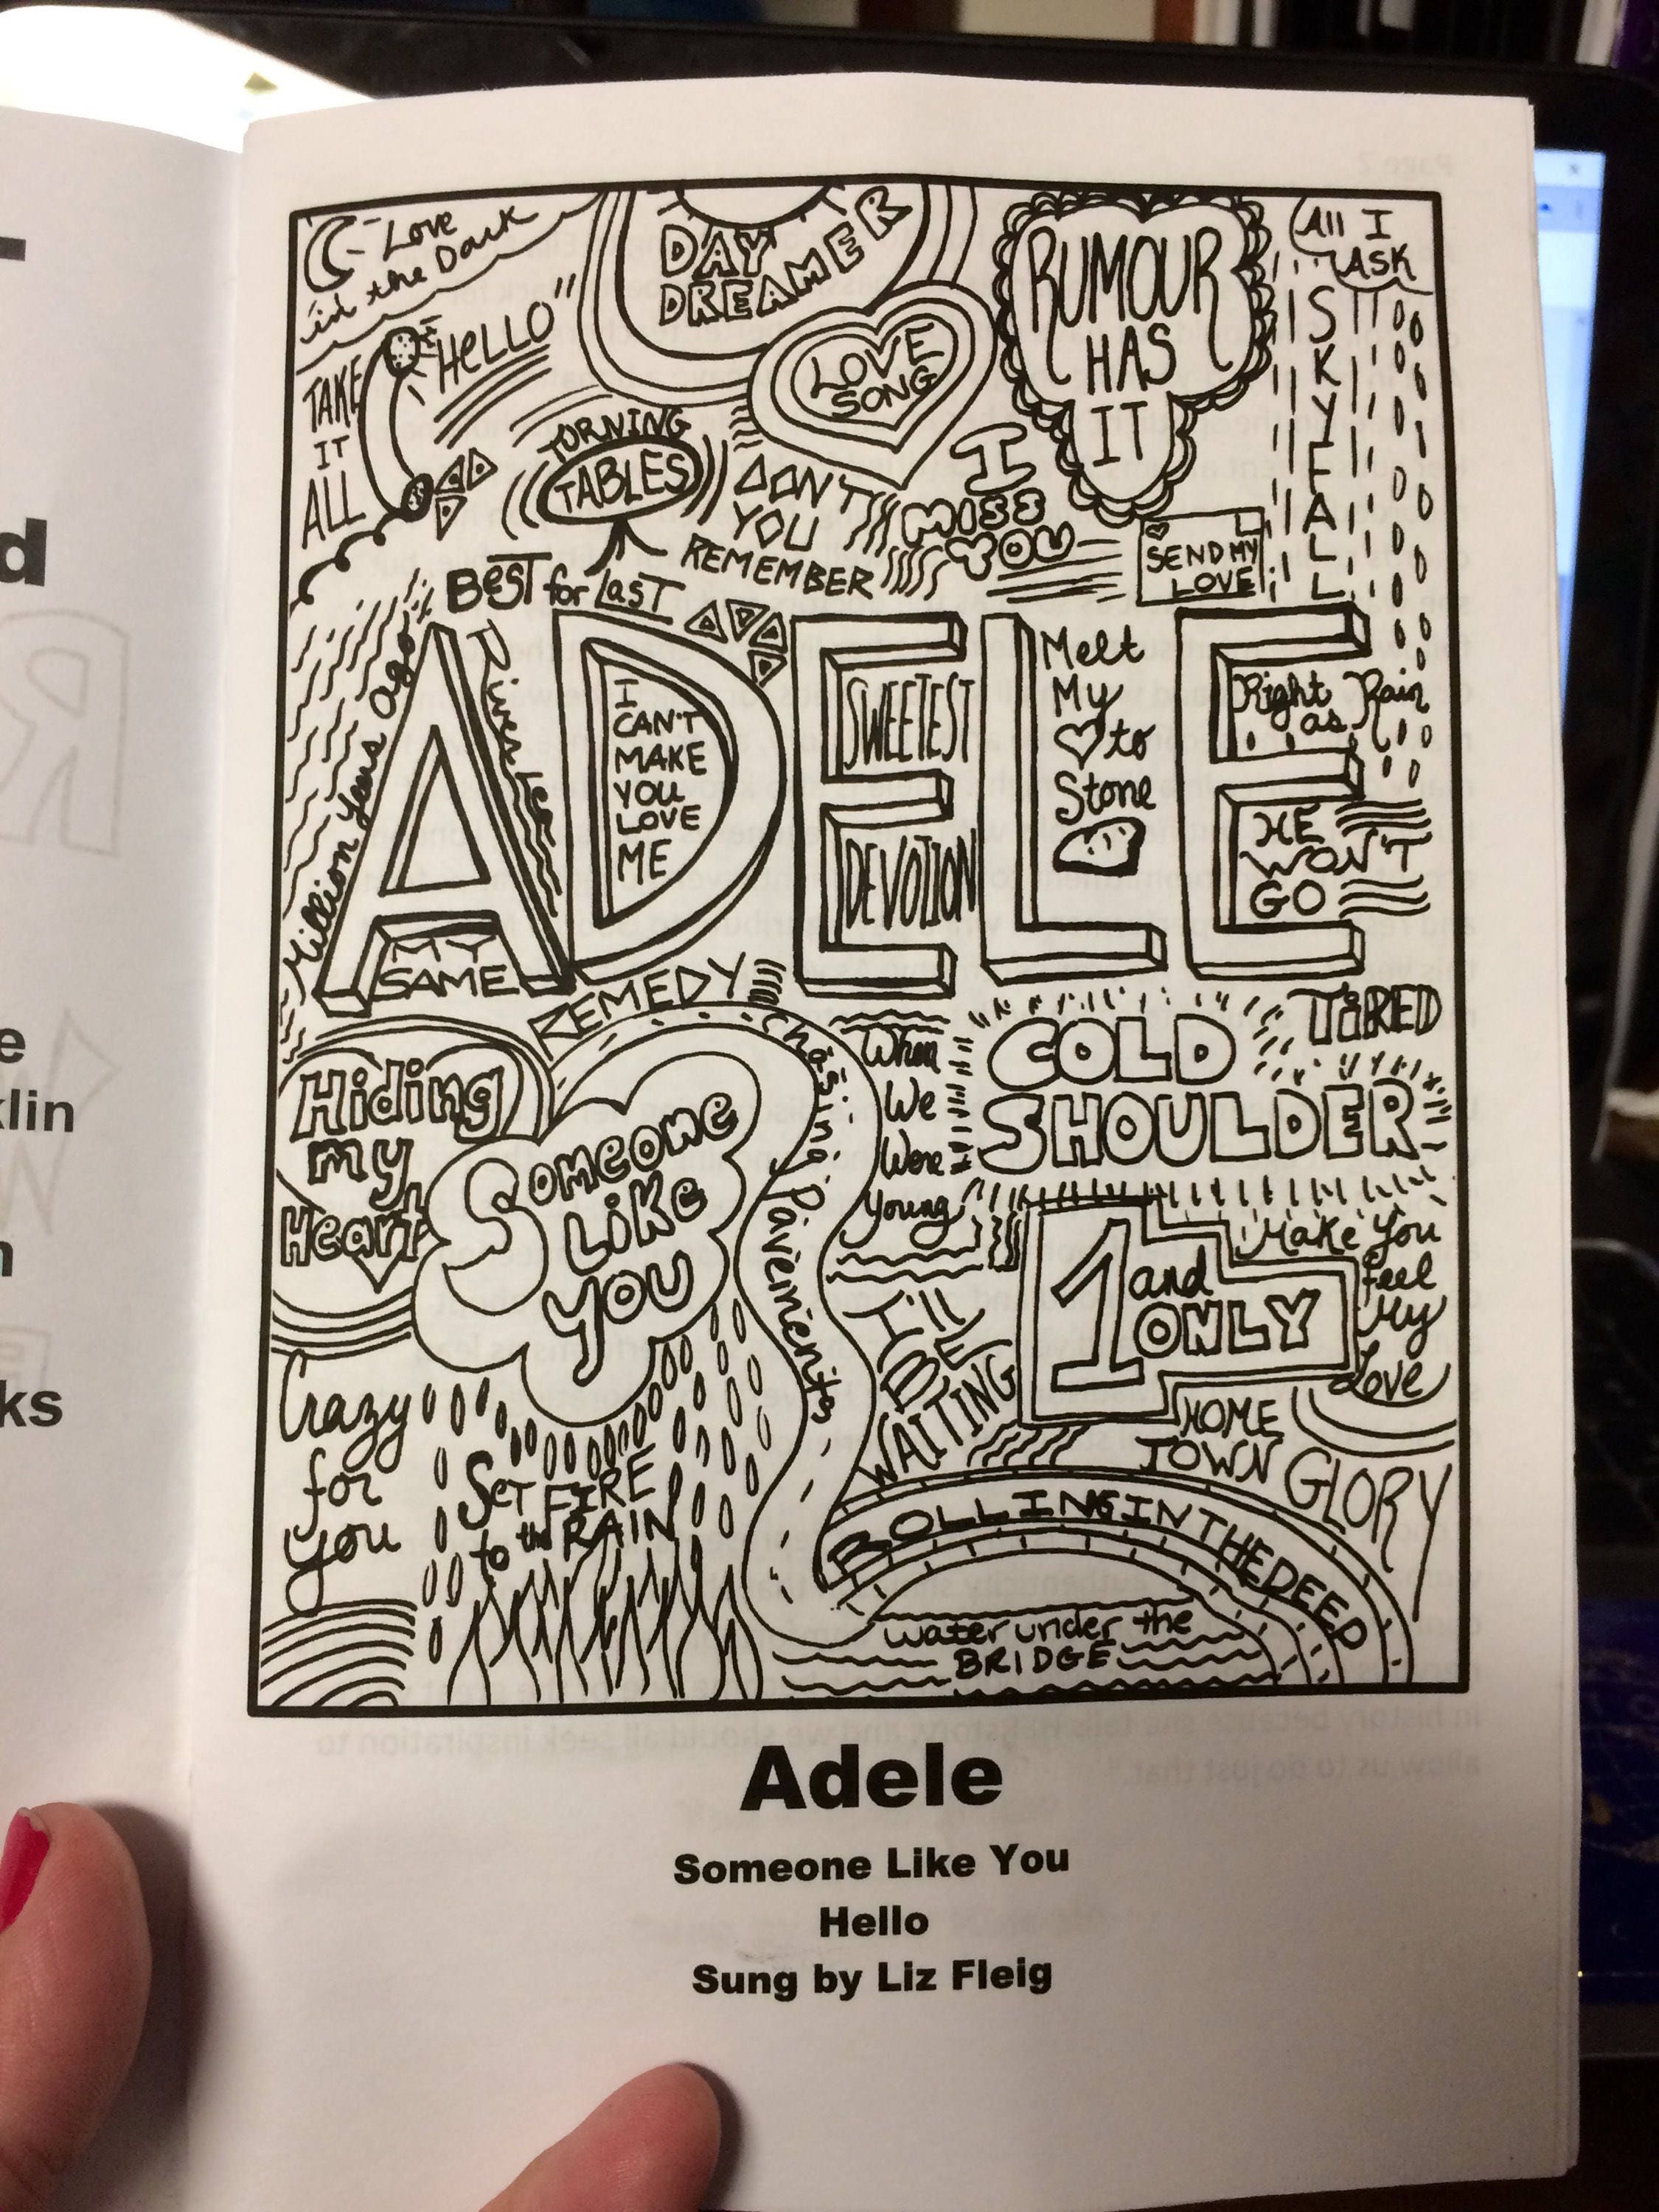 Love
in the Dark
DAY
DREAMER
RUMOUR
HAS
IT
All I
ASK
SKYFALL
"HELLO"
TAKE
IT
ALL
LOVE
SONG
TURNING
TABLES
DON'T
YOU
REMEMBER
I
MISS
YOU
SEND MY
LOVE
BEST for LAST
Million Years Ago
ADELE
River Lea
I
CAN'T
MAKE
YOU
LOVE
ME
SWEETEST
DEVOTION
Melt
My
♡ to
Stone
Right as Rain
HE
WON'T
GO
MY
SAME
REMEDY
Chasing Pavements
When
We
Were
Young
COLD
SHOULDER
TiRED
Hiding
my
Heart
SOMEONE
LiKE
YOU
1 and
ONLY
Make You
Feel
My
Love
I'll
BE
WAITING
Crazy
for
you
SET FIRE
to the RAIN
HOME
TOWN GLORY
ROLLING IN THE DEEP
water under the
BRIDGE
Adele
Someone Like You
Hello
Sung by Liz Fleig
d
e
klin
n
ks